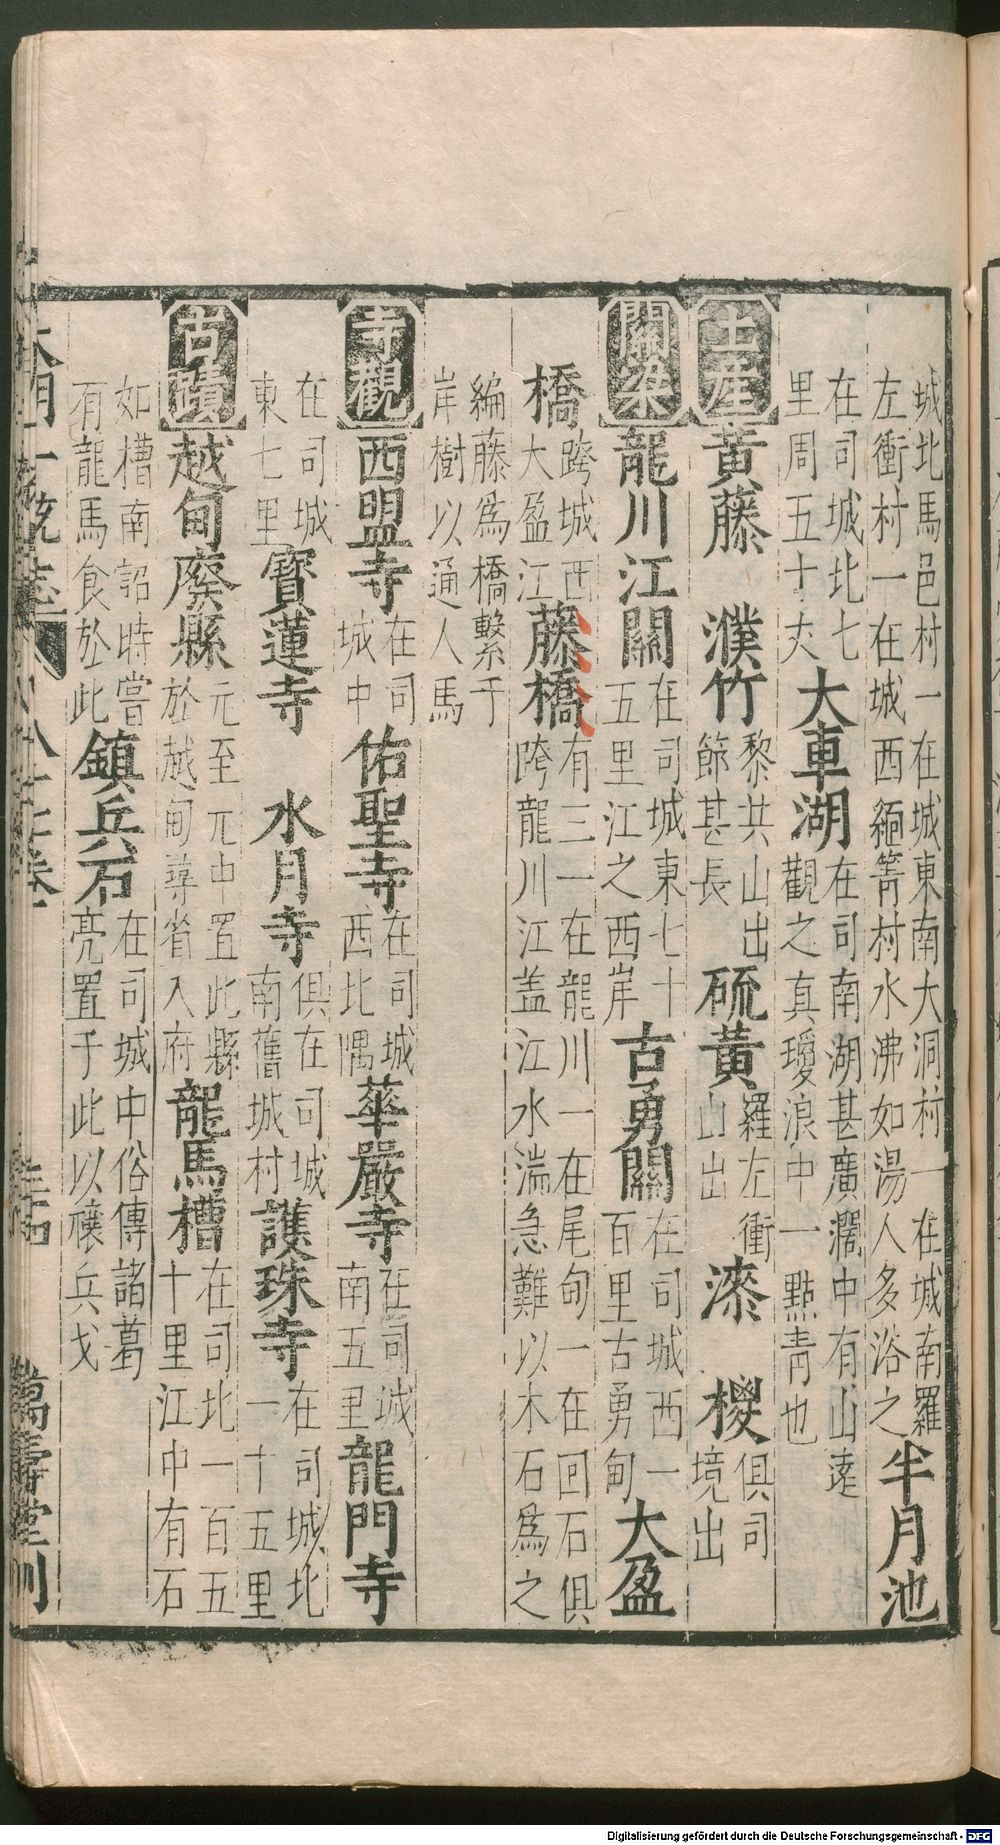 城北馬邑村一在城東南大洞村一在城南羅左衝村一在城西緬箐村水沸如湯人多浴之半月池
在司城北七里周五十丈大車湖在司南湖甚廣濶中有山遠觀之真瓊浪中一點青也
土産 黃藤 濮竹黎共山出節甚長 硫黃羅左衝山出 漆 椶俱司境出
關梁 龍川江關在司城東七十五里江之西岸古勇關在司城西一百里古勇甸大盈
橋跨城西大盈江藤橋有三一在龍川一在尾甸一在回石俱跨龍川江盖江水湍急難以木石爲之
編藤爲橋繫于岸樹以通人馬
寺觀 西盟寺在司城中佑聖寺在司城西北隅華嚴寺在司城南五里龍門寺
在司城東七里寶蓮寺 水月寺俱在司城南舊城村護珠寺在司城北一十五里
古蹟 越甸廢縣元至元中置此縣於越甸尋省入府龍馬槽在司北一百五十里江中有石
如槽南詔時嘗有龍馬食於此鎮兵石在司城中俗傳諸葛亮置于此以禳兵戈
大明一統志
萬壽堂刊
Digitalisierung gefördert durch die Deutsche Forschungsgemeinschaft - DFG